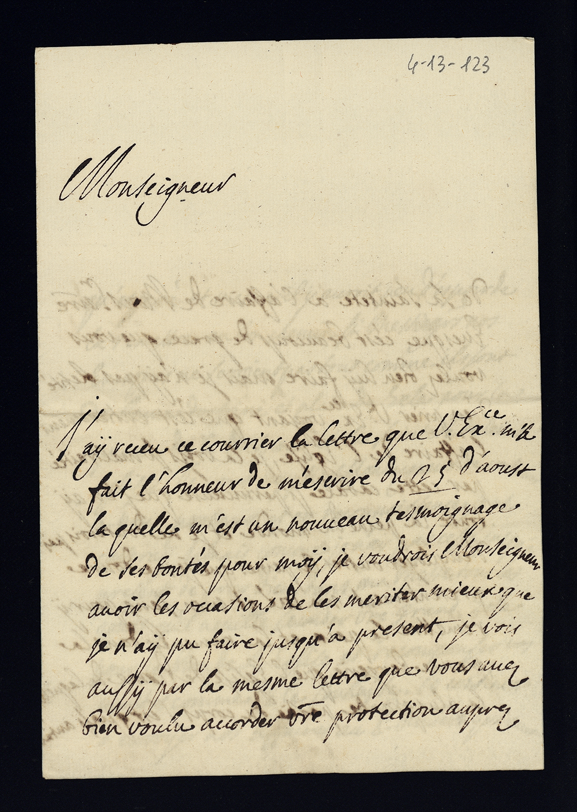 4-13-123
Monseigneur
J'aÿ receu ce courrier la lettre que V. Exce. m'a
fait l'honneur de m'escrire du 25 d'aoust
la quelle m'est un nouveau tesmoignage
de ses bontés pour moÿ, je voudrois Monseigneur
avoir les occasions de les meriter mieux que
je n'aÿ pu faire jusqu'a present, je vois
aussÿ par la mesme lettre que vous avez
bien voulu accorder vre protection auprez